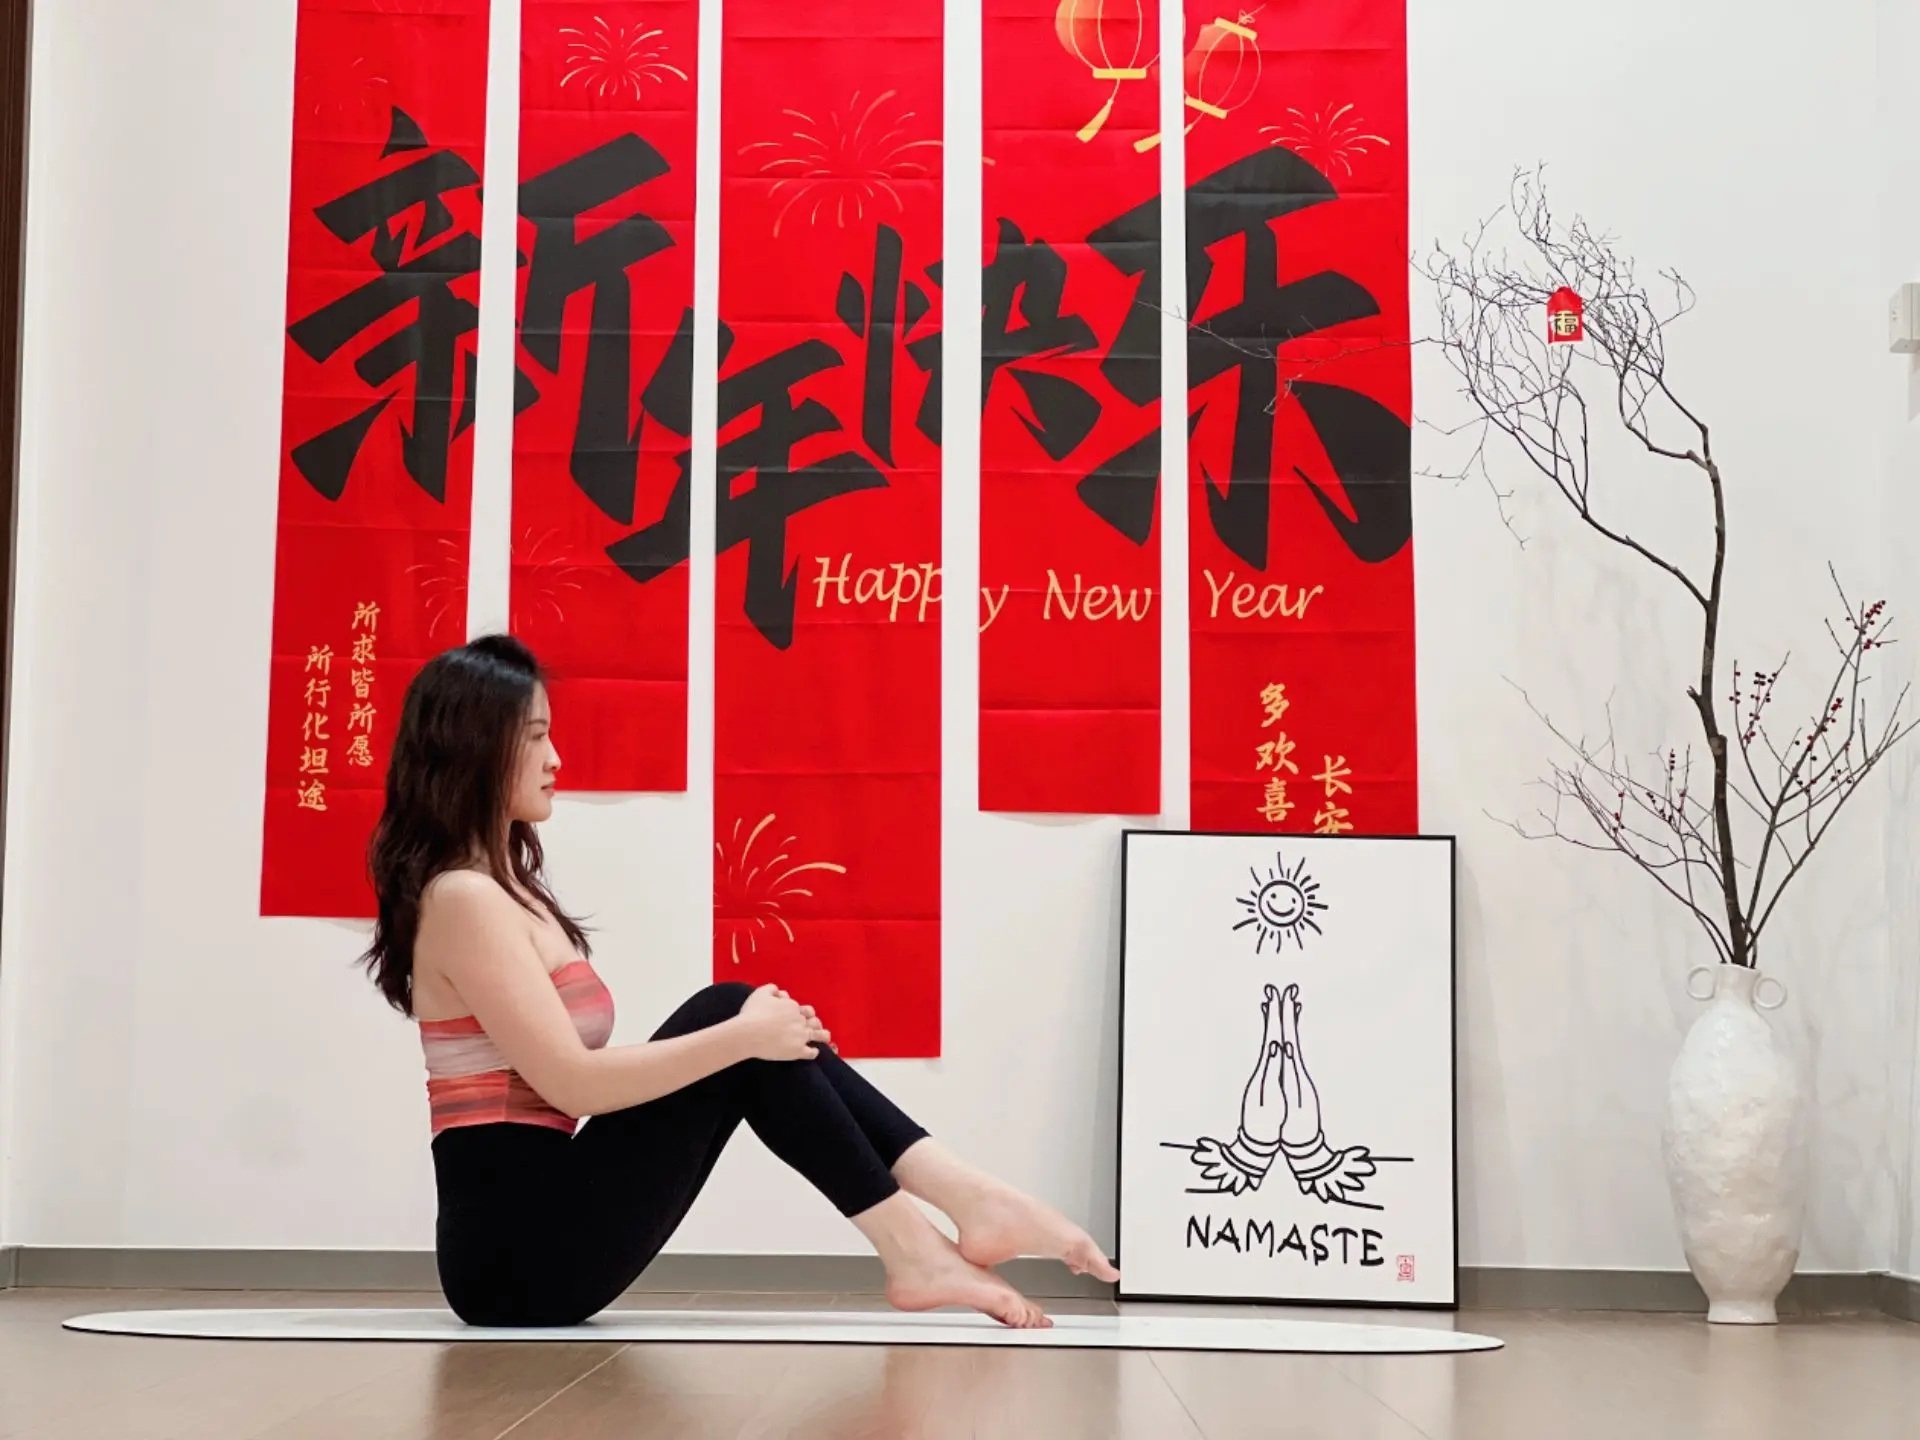 新年快乐
Happy New Year
所求皆所愿
所行化坦途
多欢喜
长安
福
NAMASTE